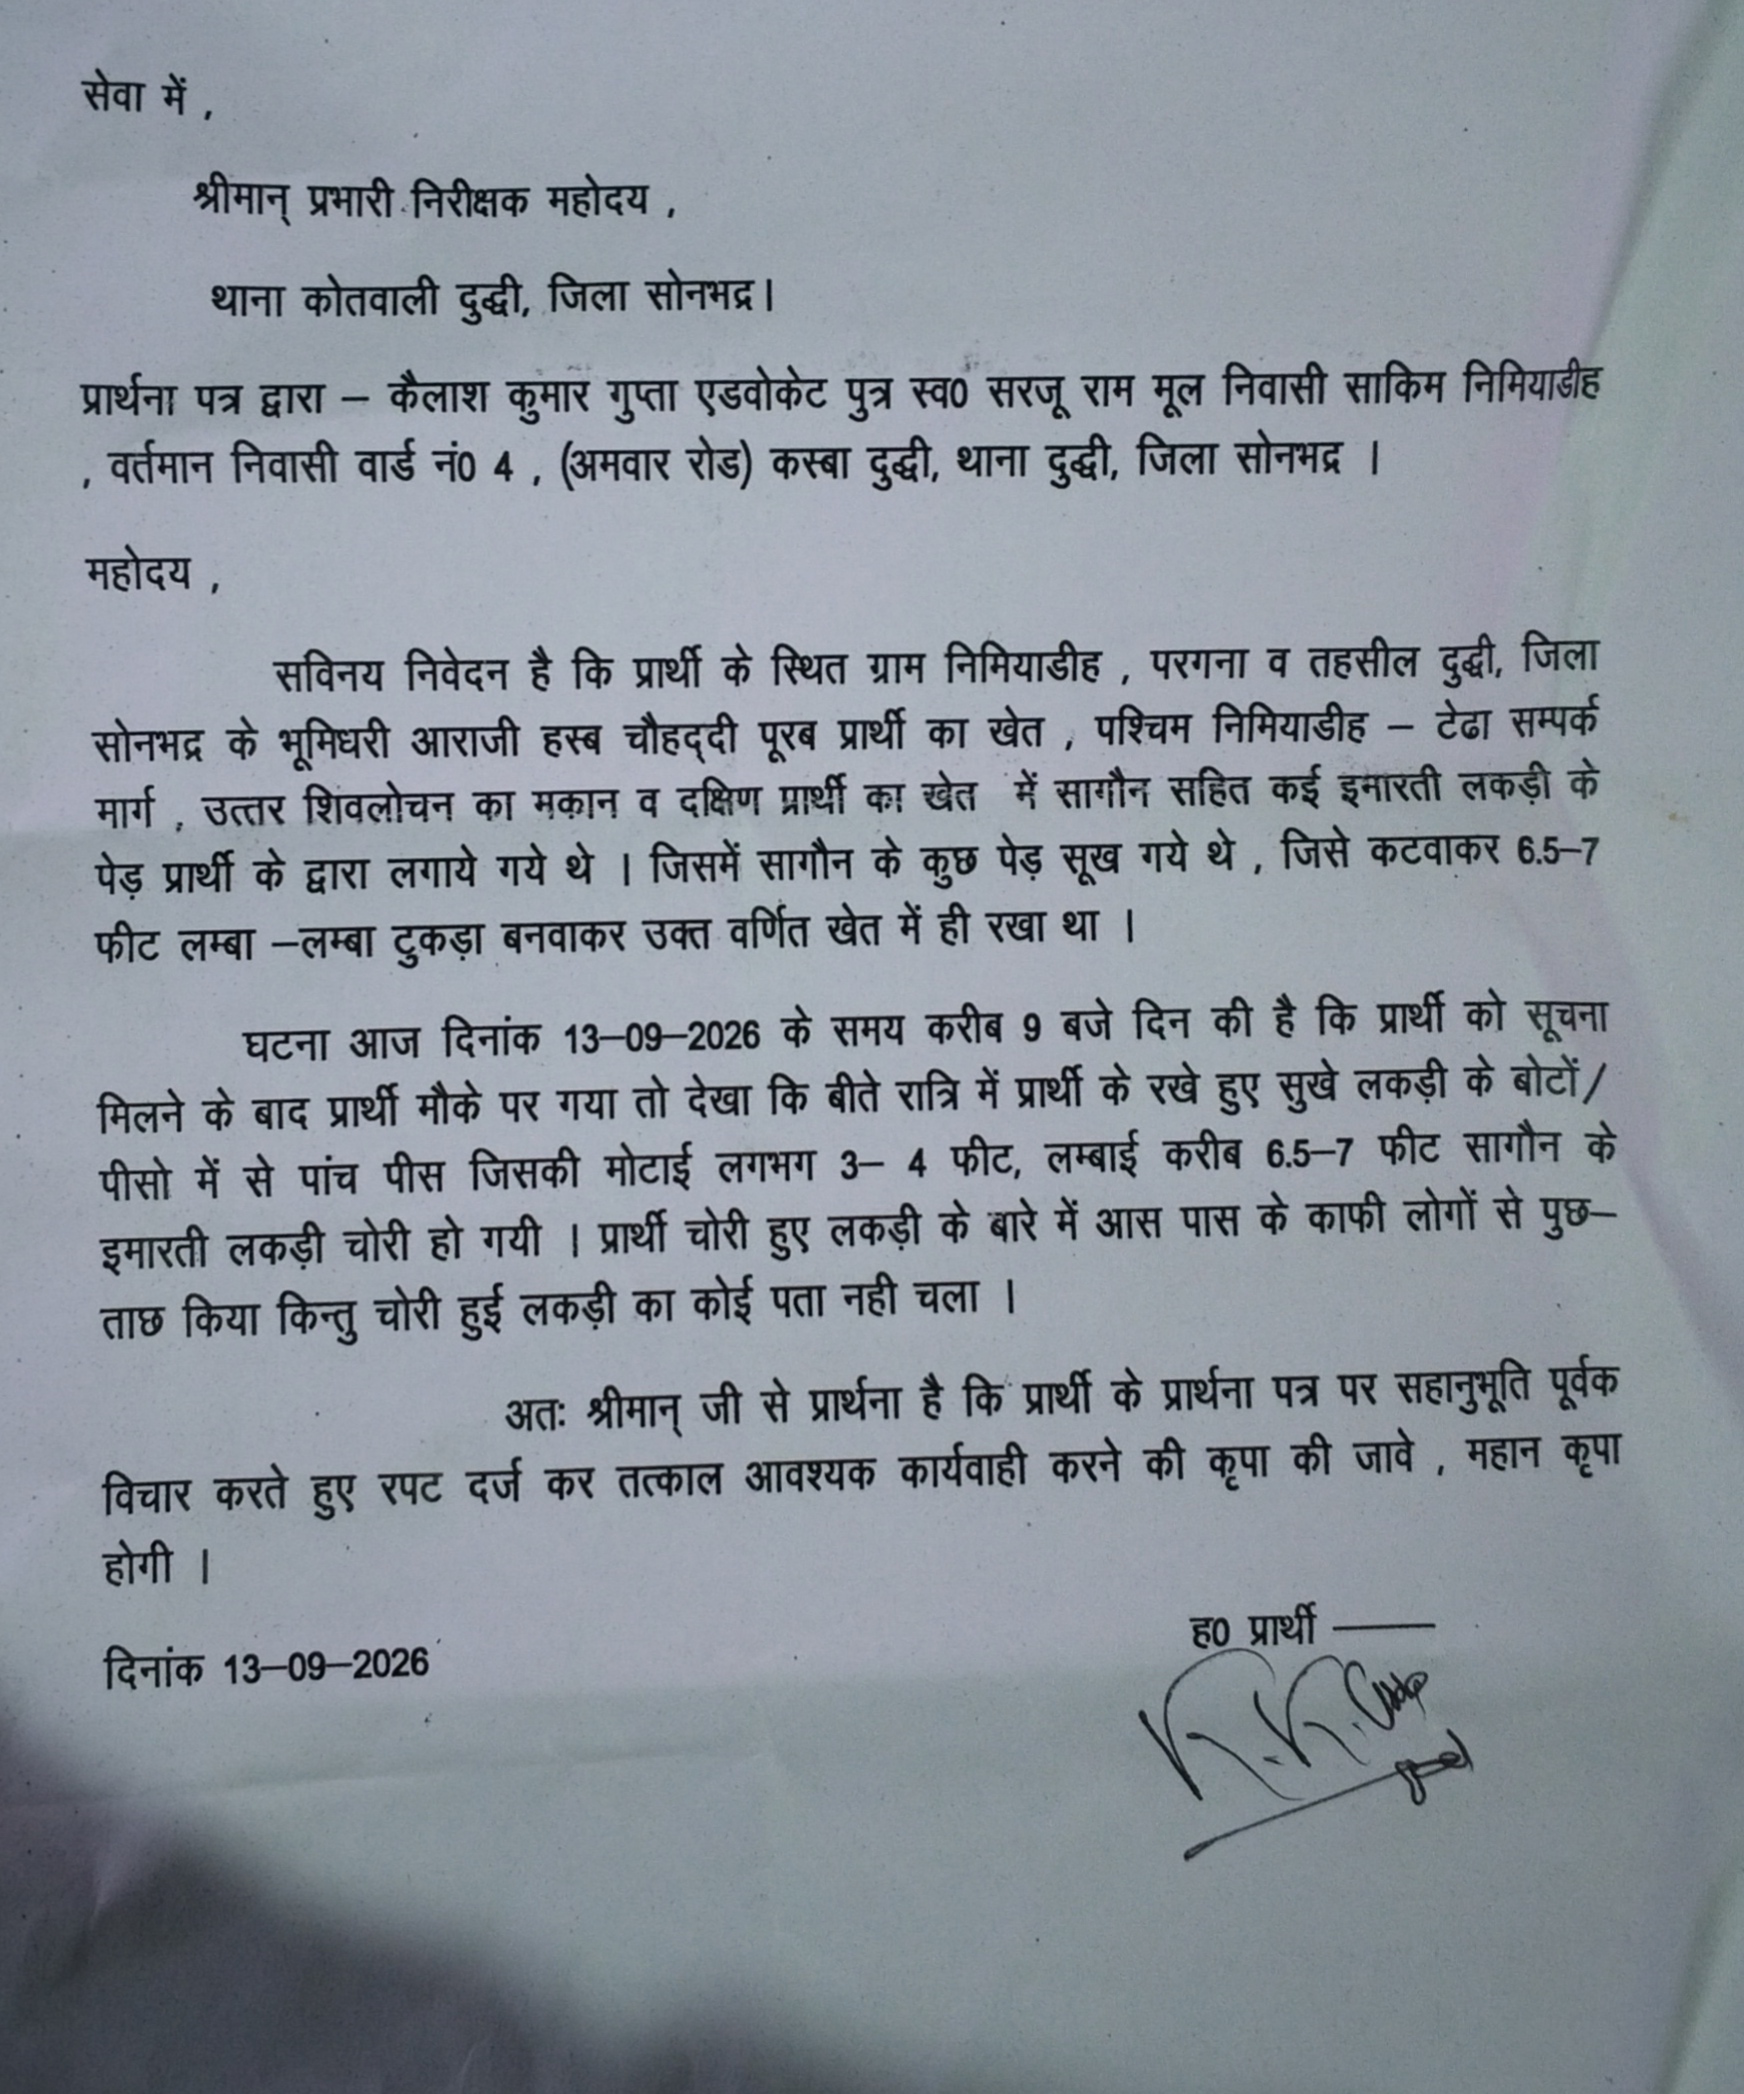 सेवा में ,
श्रीमान् प्रभारी निरीक्षक महोदय ,
थाना कोतवाली दुद्धी, जिला सोनभद्र।
प्रार्थना पत्र द्वारा – कैलाश कुमार गुप्ता एडवोकेट पुत्र स्व0 सरजू राम मूल निवासी साकिम निमियाडीह
, वर्तमान निवासी वार्ड नं0 4 , (अमवार रोड) कस्बा दुद्धी, थाना दुद्धी, जिला सोनभद्र ।
महोदय ,
सविनय निवेदन है कि प्रार्थी के स्थित ग्राम निमियाडीह , परगना व तहसील दुद्धी, जिला
सोनभद्र के भूमिधरी आराजी हस्ब चौहद्दी पूरब प्रार्थी का खेत , पश्चिम निमियाडीह – टेढा सम्पर्क
मार्ग , उत्तर शिवलोचन का मकान व दक्षिण प्रार्थी का खेत में सागौन सहित कई इमारती लकड़ी के
पेड़ प्रार्थी के द्वारा लगाये गये थे । जिसमें सागौन के कुछ पेड़ सूख गये थे , जिसे कटवाकर 6.5–7
फीट लम्बा –लम्बा टुकड़ा बनवाकर उक्त वर्णित खेत में ही रखा था ।
घटना आज दिनांक 13–09–2026 के समय करीब 9 बजे दिन की है कि प्रार्थी को सूचना
मिलने के बाद प्रार्थी मौके पर गया तो देखा कि बीते रात्रि में प्रार्थी के रखे हुए सुखे लकड़ी के बोटों/
पीसो में से पांच पीस जिसकी मोटाई लगभग 3– 4 फीट, लम्बाई करीब 6.5–7 फीट सागौन के
इमारती लकड़ी चोरी हो गयी । प्रार्थी चोरी हुए लकड़ी के बारे में आस पास के काफी लोगों से पुछ–
ताछ किया किन्तु चोरी हुई लकड़ी का कोई पता नही चला ।
अतः श्रीमान् जी से प्रार्थना है कि प्रार्थी के प्रार्थना पत्र पर सहानुभूति पूर्वक
विचार करते हुए रपट दर्ज कर तत्काल आवश्यक कार्यवाही करने की कृपा की जावे , महान कृपा
होगी ।
ह0 प्रार्थी ——
दिनांक 13–09–2026
K.K.